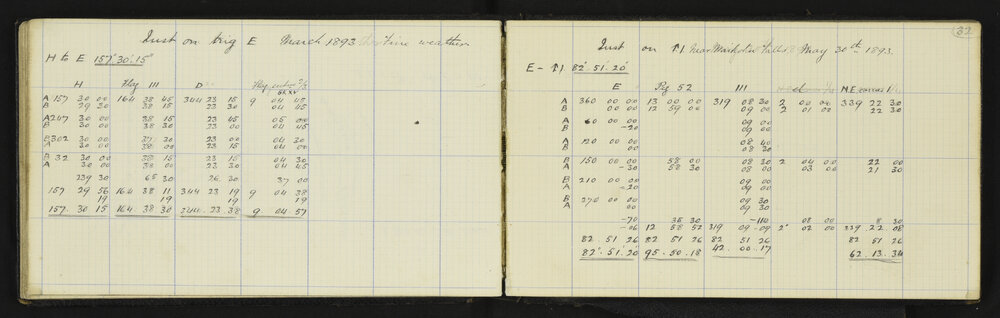 Inst on trig E March 1893 fine weather
H to E 157° 30' 15"
H Flag III D Flag
A 157 30 00 164 38 45 344 23 15 9 04 45
B 29 30 38 15 23 30 04 45
A 247 30 00 38 15 23 45 05 00
B 30 00 38 30 23 00 04 45
B 302 30 00 37 30 23 00 04 30
A 30 00 38 00 23 15 04 45
B 32 30 00 38 15 23 15 04 30
A 30 00 38 00 23 30 04 45
239 30 65 30 26 30 37 00
157 29 56 164 38 11 344 23 19 9 04 38
19 19 19 19
157. 30 15 164. 38 30 344. 23 38 9 04 57
32
Inst on ↑1 May 30th 1893.
E - ↑1 82° 51' 20"
E Peg 52 III N.E. corner
A 360 00 00 13 00 00 319 08 30 2 00 00 339 22 30
B 00 00 12 59 00 09 00 2 01 00 22 30
A 60 00 00 09 00
B -20 09 00
A 120 00 00 08 40
B 00 08 30
B 150 00 00 58 00 08 30 2 04 00 22 00
A -30 58 30 08 00 03 00 21 30
B 210 00 00 09 00
A -20 09 00
B 270 00 00 09 30
A 00 09 30
-70 35 30 -110 08 00 8 30
-06 12 58 52 319 09 -09 2° 02 00 339 22 08
82 51 26 82 51 26 82 51 26 82 51 26
82° 51' 20 95. 50. 18 42. 00. 17 62. 13. 34